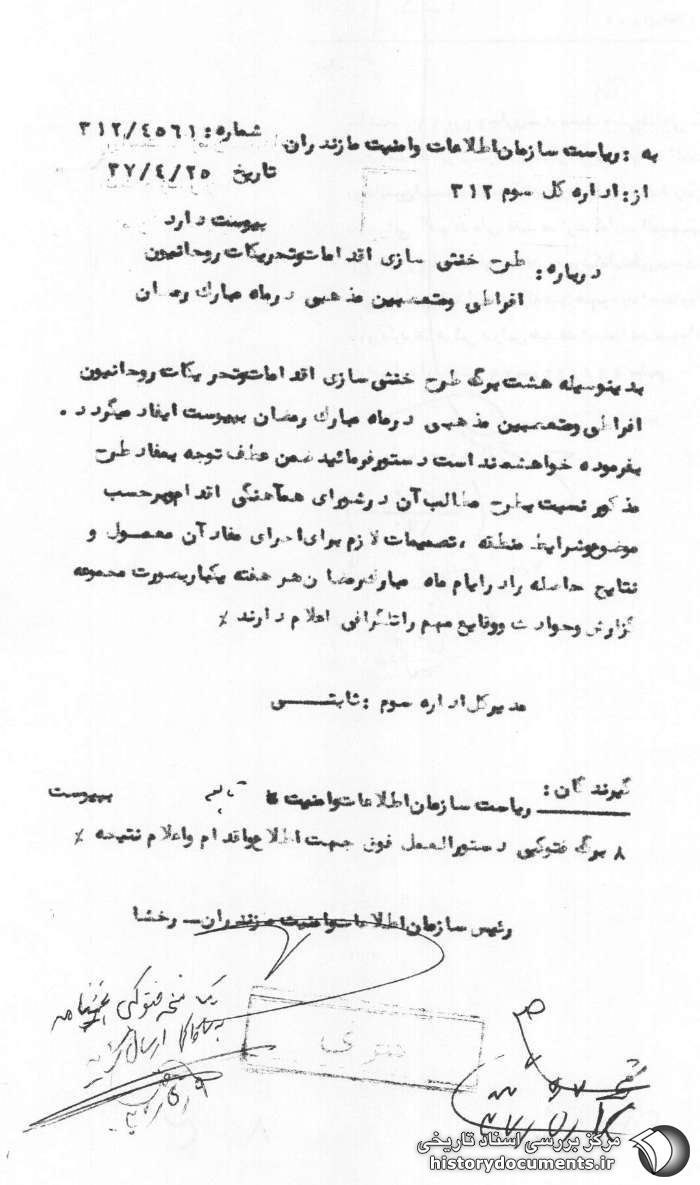 به : ریاست سازمان اطلاعات وامنیت مازندران شماره : ۳۱۲/٤٥٦۱
از : اداره کل سوم ۳۱۲ تاریخ ۳۷/٤/۲٥
پیوست دارد
درباره : طرح خنثی سازی اقدامات وتحریکات روحانیون
افراطی ومتعصبین مذهبی درماه مبارک رمضان
بدینوسیله هشت برگ طرح خنثی سازی اقدامات وتحریکات روحانیون
افراطی ومتعصبین مذهبی درماه مبارک رمضان بپیوست ایفاد میگردد .
بفرموده خواهشمند است دستور فرمائید ضمن عطف توجه بمفاد طرح
مذکور نسبت بطرح مطالب آن درشورای هماهنگی اقدام وبرحسب
موضوع وشرایط منطقه ، تصمیمات لازم برای اجرای مفاد آن معمول و
نتایج حاصله را درایام ماه مبارک رمضان هر هفته یکبار بصورت مجموعه
گزارش وحوادث ووقایع مهم را تلگرافی اعلام دارند ٪
مدیرکل اداره سوم : ثابتــــی
گیرندگان :
ریاست سازمان اطلاعات وامنیت بپیوست
۸ برگ فتوکپی دستورالعمل فوق جهت اطلاع واقدام واعلام نتیجه ٪
رئیس سازمان اطلاعات وامنیت مازندران ـ رخشا
نسخه فتوکپی
ارسال
سری
مرکز بررسی اسناد تاریخی
historydocuments.ir